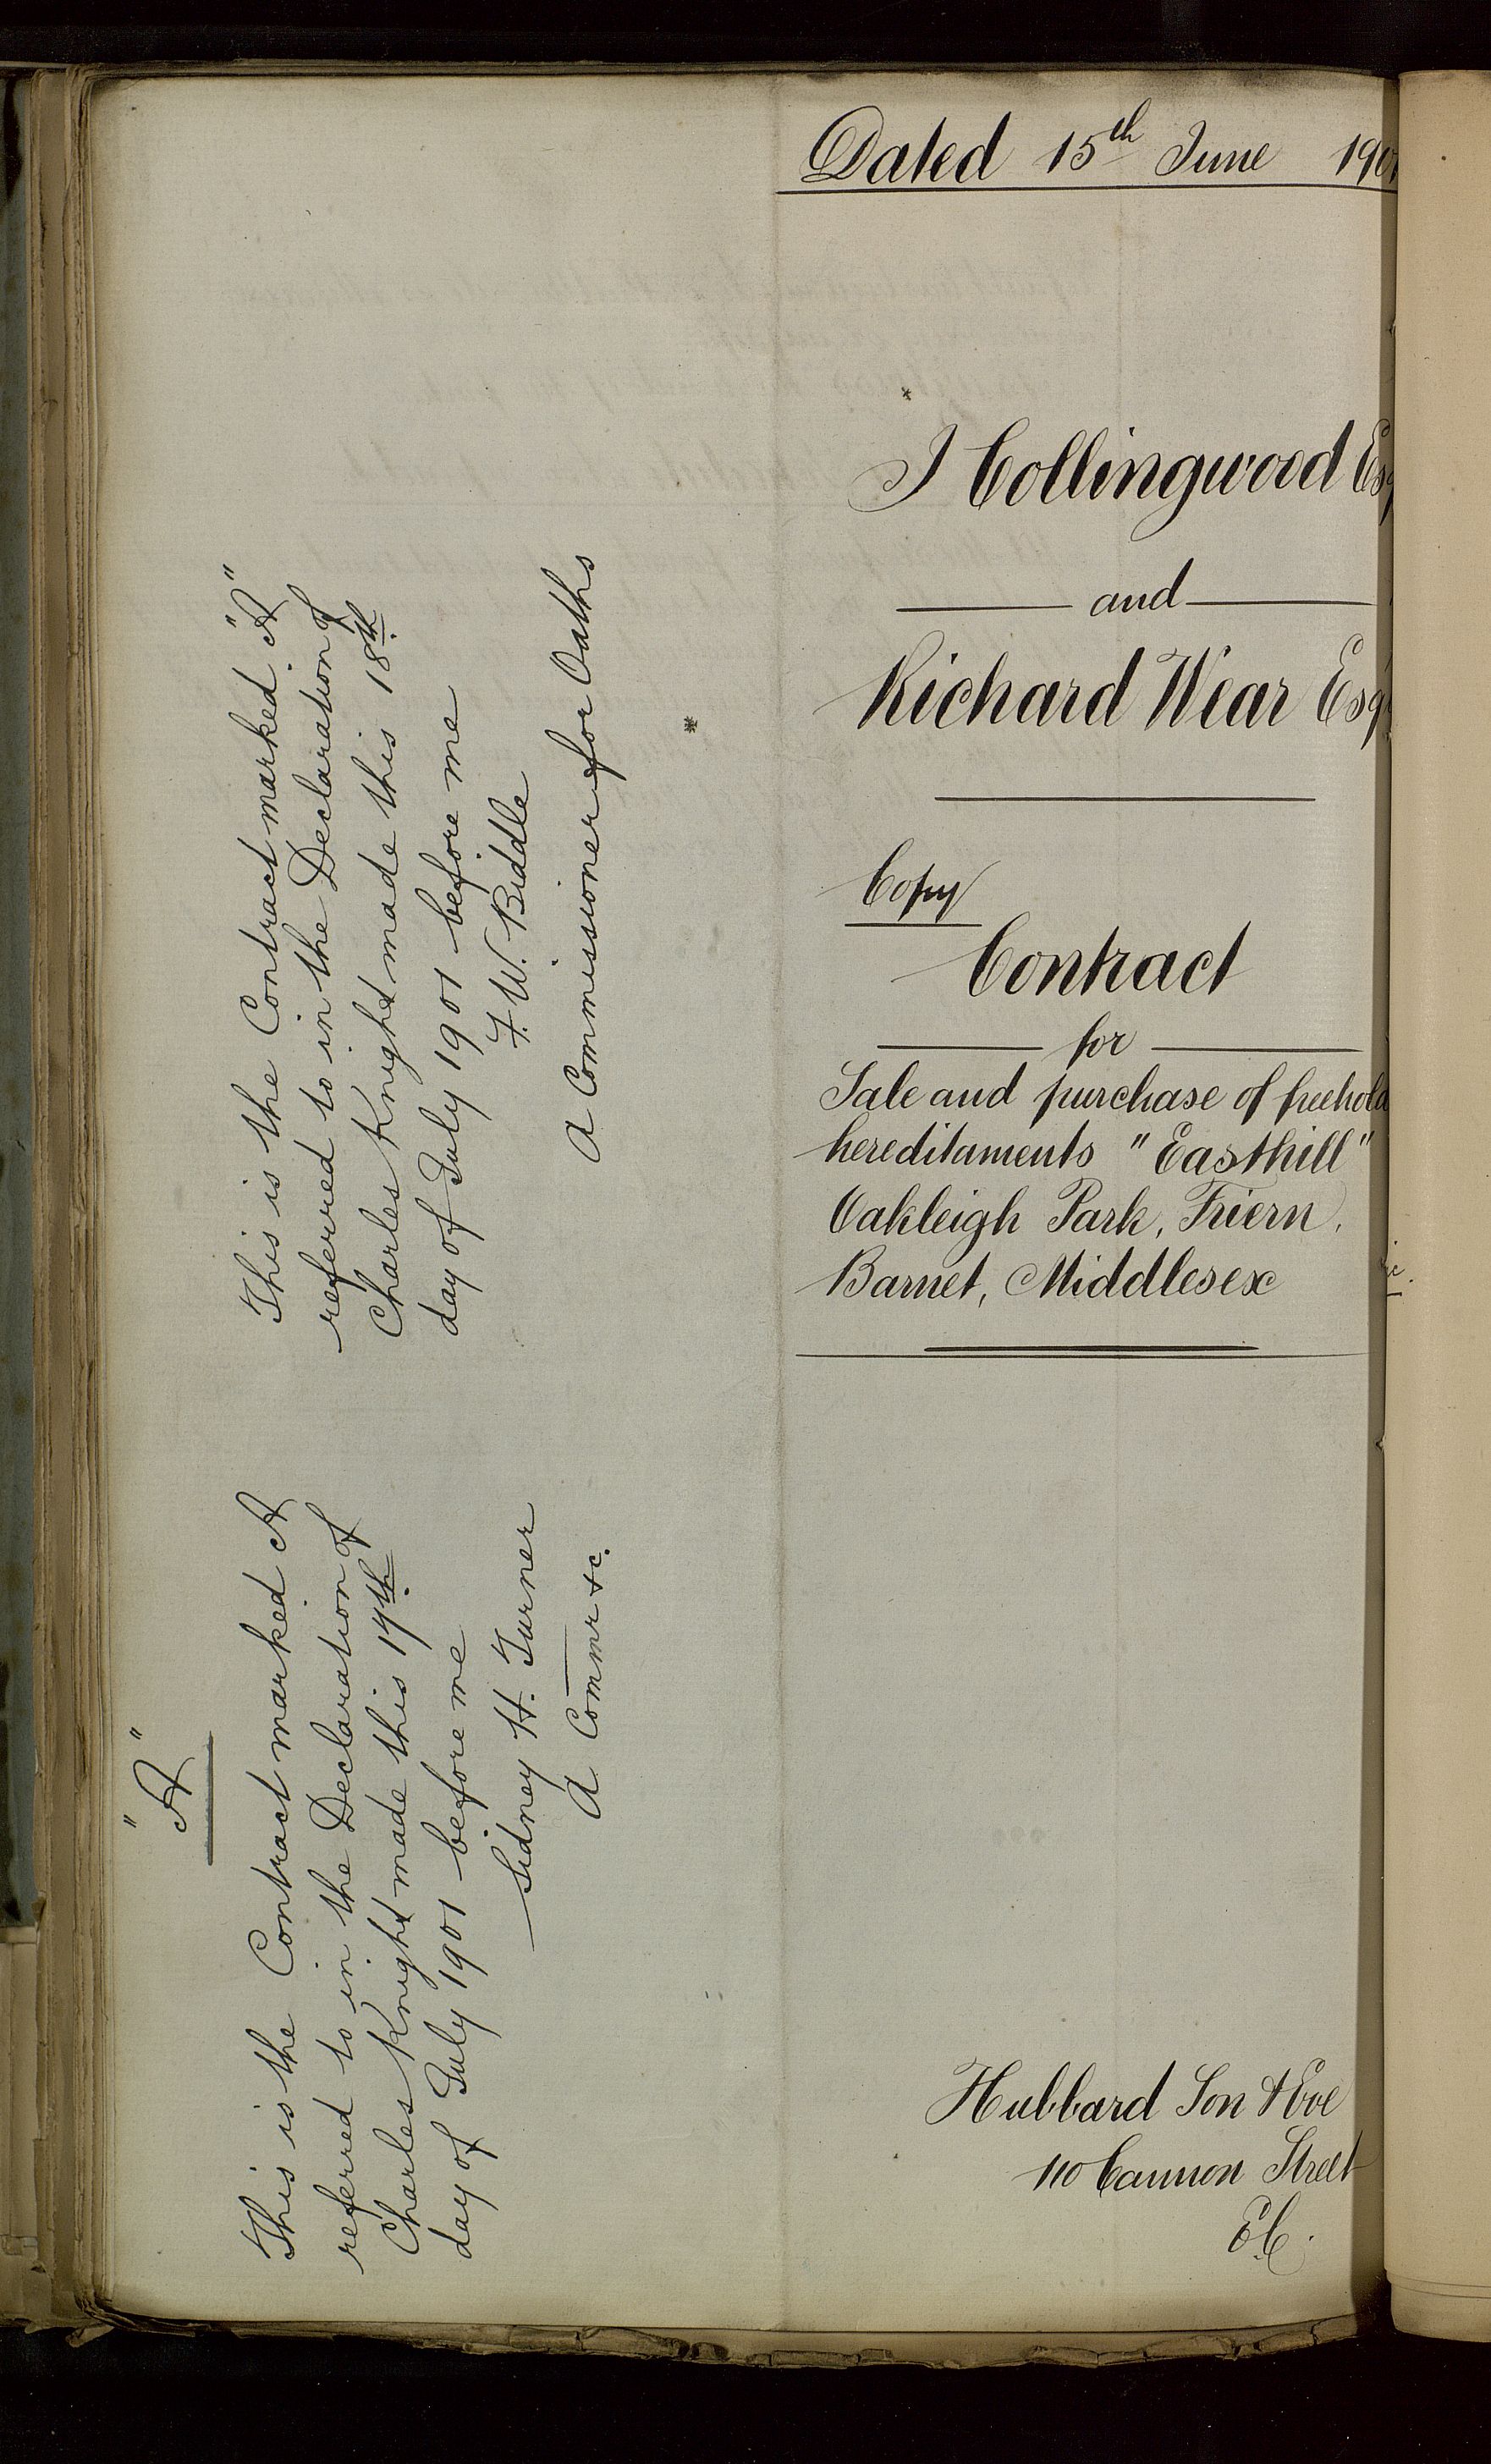 Dated 15th June 1901
J Collingwood Esq
and
Richard Wear Esq
Copy
Contract
for
Sale and purchase of freehold
hereditaments "Easthill"
Oakleigh Park, Friern
Barnet, Middlesex
Hubbard Son & Eve
110 Cannon Street
E.C.
This is the Contract marked "A"
referred to in the Declaration of
Charles Knight made this 18th
day of July 1901 before me
F. W. Biddle
A Commissioner for Oaths
"A"
This is the Contract marked A
referred to in the Declaration of
Charles Knight made this 17th
day of July 1901 before me
Sidney H. Turner
A Commr &c.